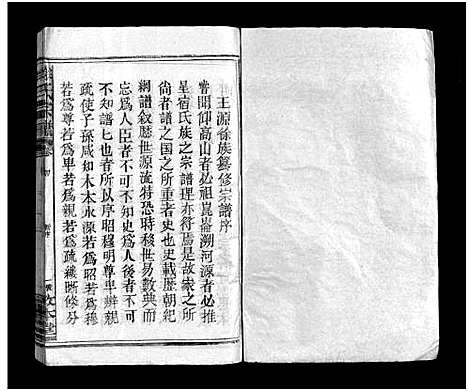 王源徐族纂修宗譜序
嘗聞仰高山者必祖崑崙溯河源者必推
星宿氏族之宗譜理亦猗焉是故家之所
尙者譜之國之所重者史也史載歷朝紀
綱譜敘歷世源流特恐時移世易數典而
忘為人臣者不可不知史為人後者不可
不知譜七也者所以序昭穆明尊卑辨親
疏使子孫咸知木本水源若為昭若為穆
若為尊若為卑若為親若為疏纖晰條分